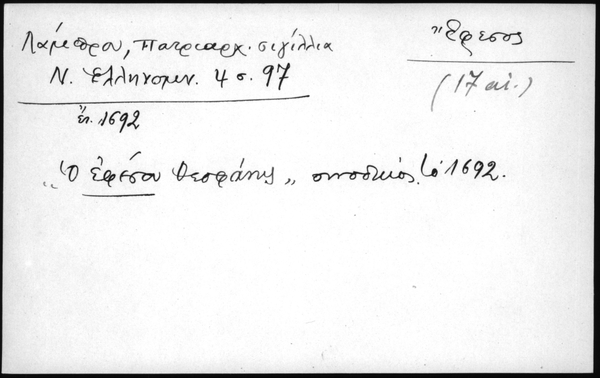 Λάμπρου, Πατριαρχ. σιγίλλια
Ν. Ἑλληνομν. 4 σ. 97
ἔτ. 1692
Ἔφεσος
(17 αἰ.)
„Ὁ Ἐφέσου Θεοφάνης„ συνοδικῶς τὸ 1692.